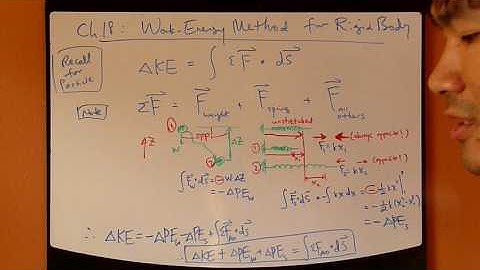 Ch 18: Work-Energy Method for Rigid Body
Recall for Particle
ΔKE = ∫ ΣF⃗ • dS⃗
Note
ΣF⃗ = F⃗weight + F⃗spring + F⃗all others
unstretched
① 
②
ΔZ
W
+Z
F = kx₁ (always opposite!)
F = kx₂ (opposite!)
∫F⃗ • dS⃗ = ⊖WΔZ
= -ΔPE
∫F⃗s • dS⃗ = -∫kx dx = ⊖½kx²
= -½k(x₂² - x₁²)
= -ΔPEs
∴ ΔKE = -ΔPEw - ΔPEs + ∫ΣFAO • dS⃗
ΔKE + ΔPEw + ΔPEs = ∫ΣFAO • dS⃗